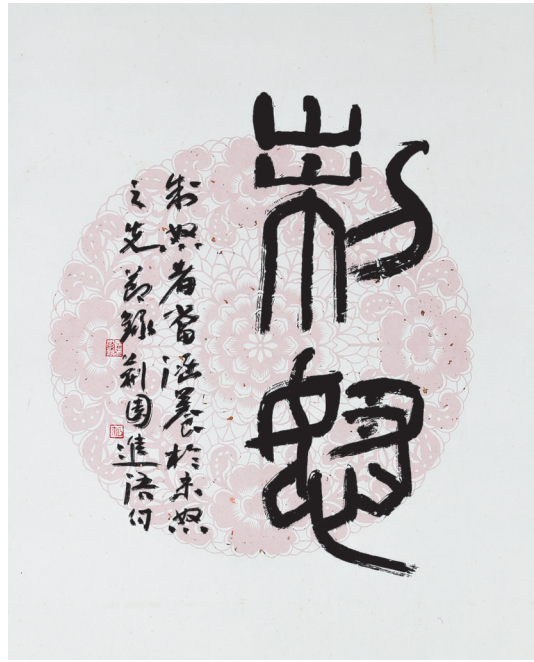 制怒
制怒者當涵養於未怒
之先節錄荆園進語句